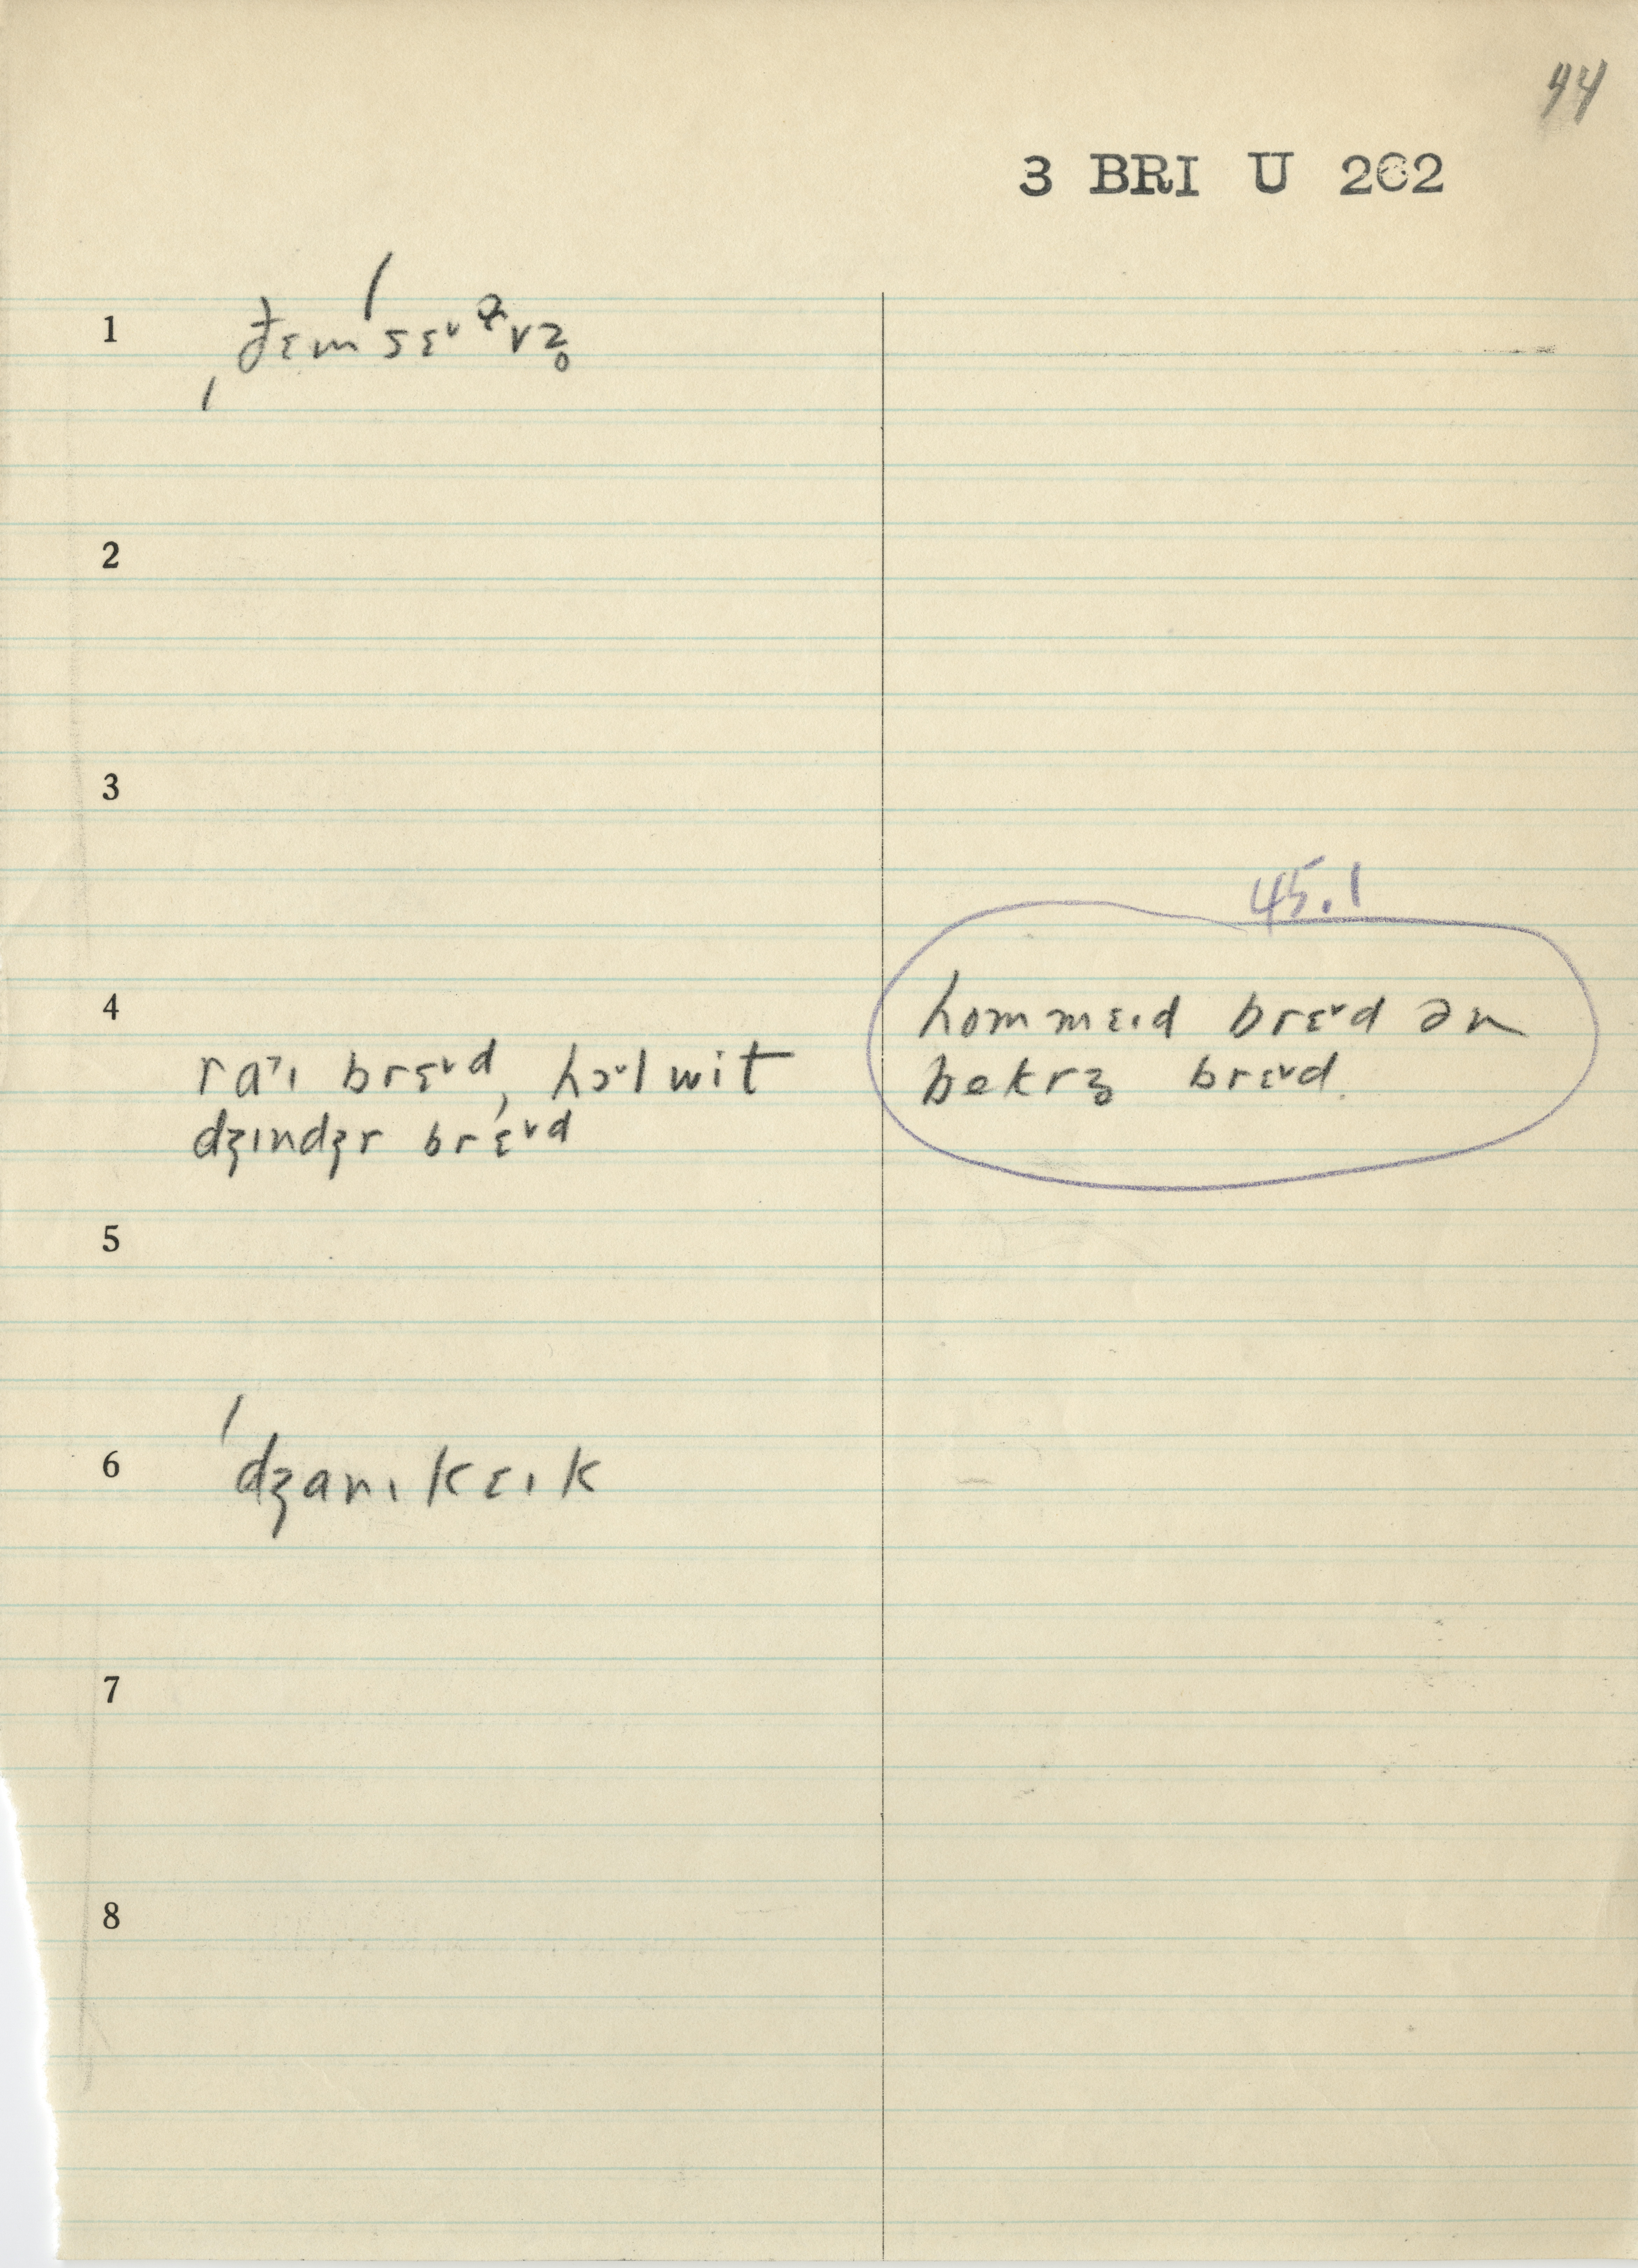 44
3 BRI U 262
1
ˌðɛmˈsɛᵛᵊvz̥
2
3
45.1
4
hommɛɪd brɛᵛd ən
bekrz̥ brɛᵛd.
raˑɪ brɛᵛd, hɔᵛlwit
dʒɪndʒr brɛᵛd
5
6
ˈdʒanɪkɛɪk
7
8